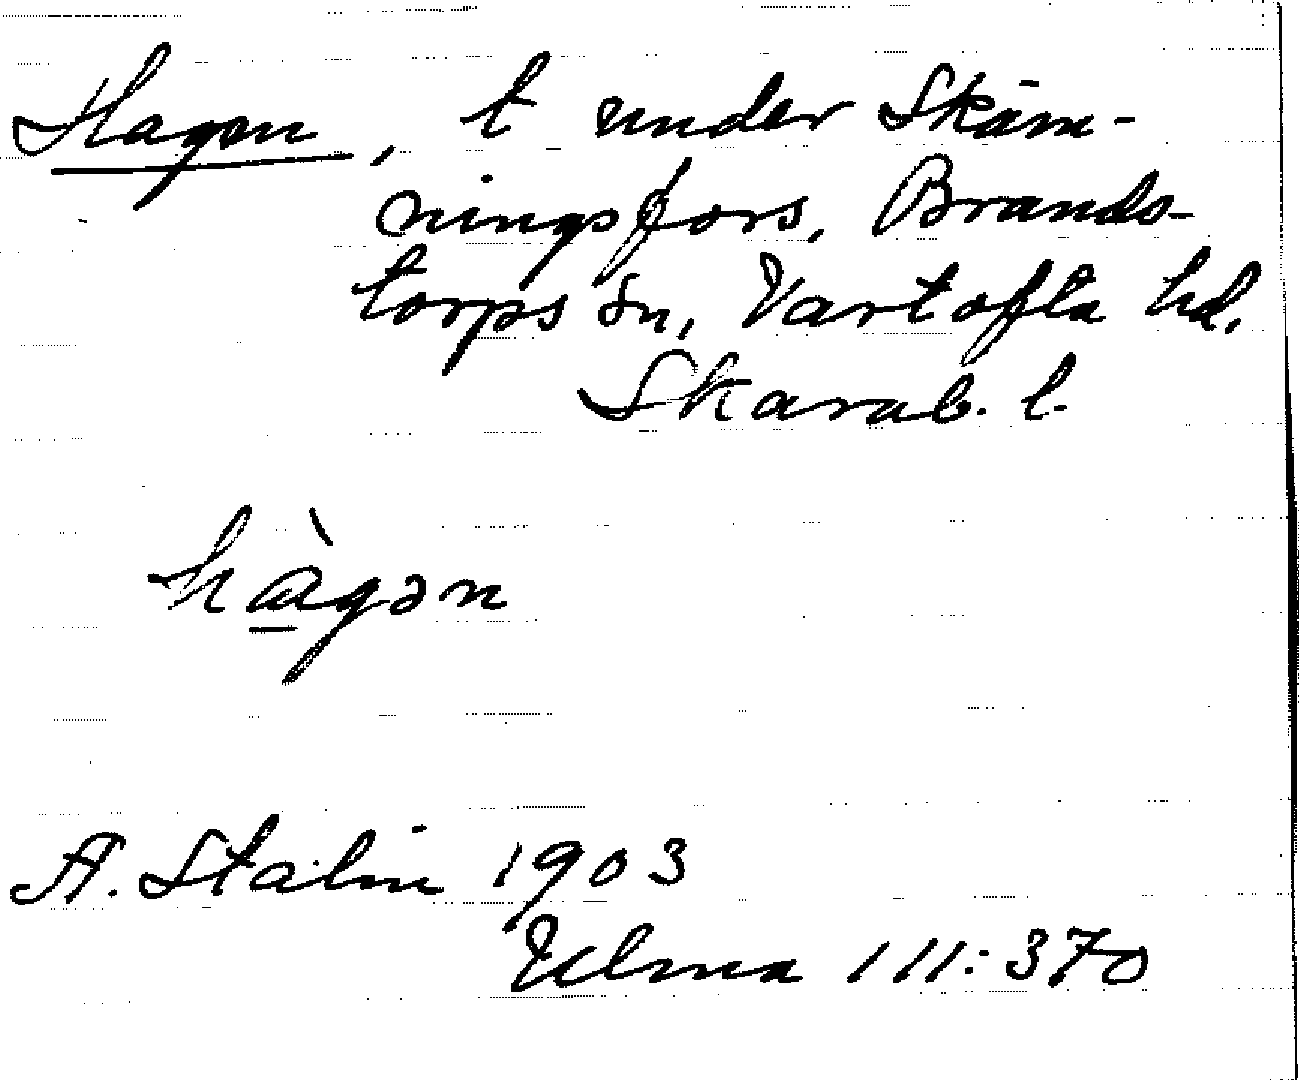 Hagen, t under Skäm-
ningsfors, Brands-
torps sn, Vartofta hd.
Skarab. l.
hàgən
A. Stalin 1903
Ulma 111:370